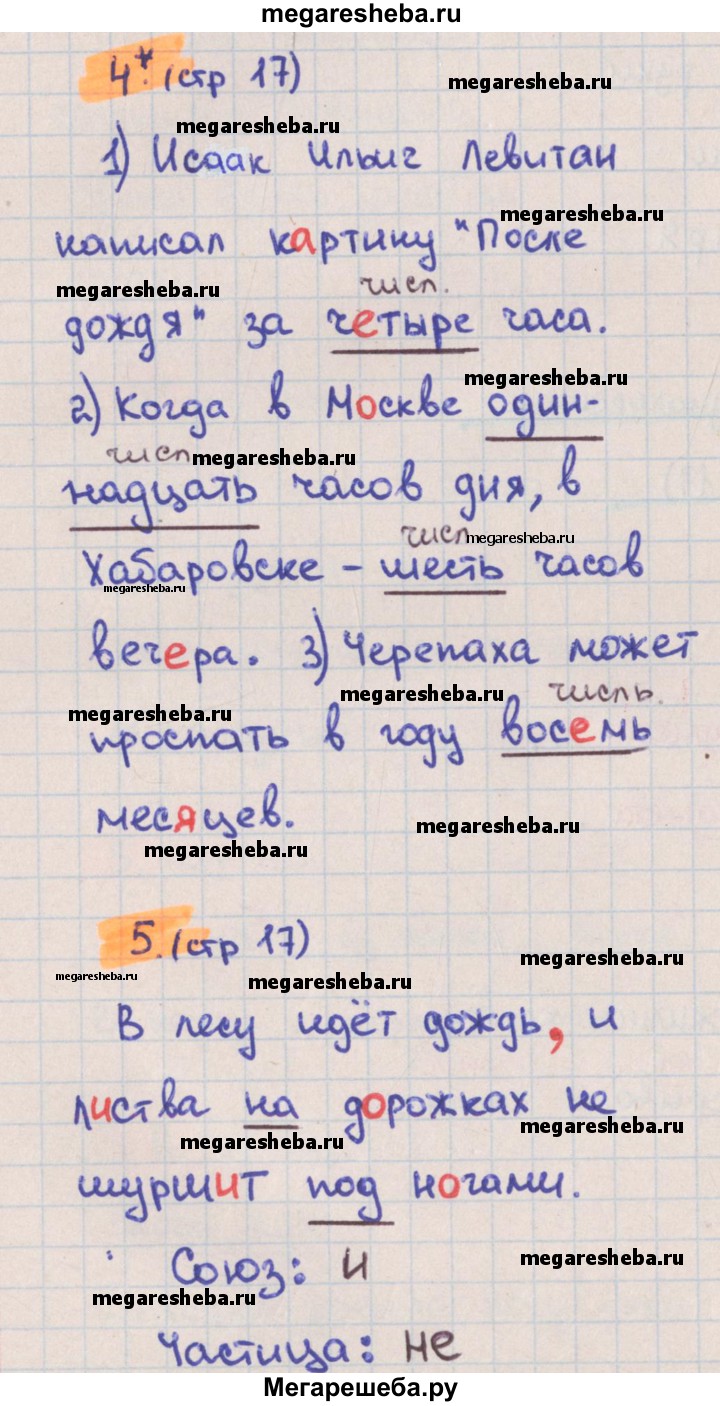 megaresheba.ru
4*. (стр 17)
megaresheba.ru
megaresheba.ru
1) Исаак Ильич Левитан
megaresheba.ru
написал картину "После
megaresheba.ru
числ.
дождя" за четыре часа.
megaresheba.ru
2) Когда в Москве один-
числ
megaresheba.ru
надцать часов дня, в
числ
megaresheba.ru
Хабаровске - шесть часов
megaresheba.ru
вечера. 3) Черепаха может
megaresheba.ru
числь.
megaresheba.ru
проспать в году восемь
месяцев.
megaresheba.ru
megaresheba.ru
5. (стр 17)
megaresheba.ru
megaresheba.ru
megaresheba.ru
В лесу идёт дождь, и
листва на дорожках не
megaresheba.ru
megaresheba.ru
шуршит под ногами.
Союз: и
megaresheba.ru
megaresheba.ru
Частица: не
Мегарешеба.ру